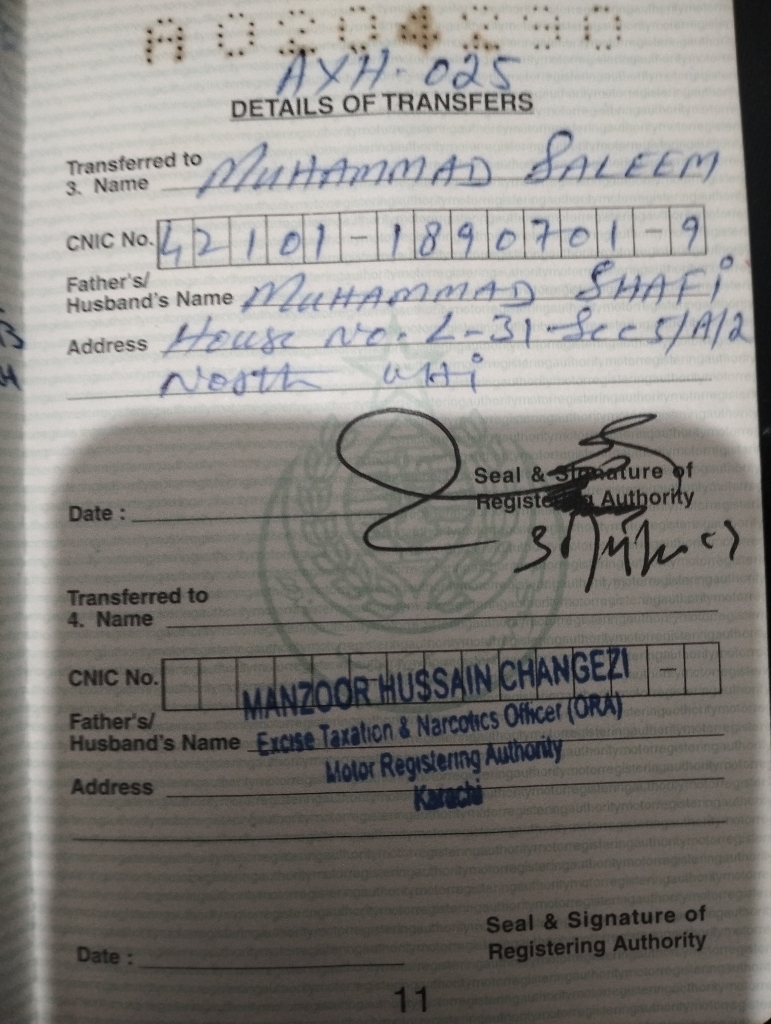 A0204290
AXH-025
DETAILS OF TRANSFERS
Transferred to
3. Name MUHAMMAD SALEEM
CNIC No. 42101-1890701-9
Father's/
Husband's Name MUHAMMAD SHAFI
Address House No. L-31-Sec 5/A/2
North
Seal & Signature of
Registering Authority
Date :
Transferred to
4. Name
CNIC No. -
MANZOOR HUSSAIN CHANGEZI
Father's/
Husband's Name Excise Taxation & Narcotics Officer (ORA)
Motor Registering Authority
Address
Karachi
Seal & Signature of
Registering Authority
Date :
11